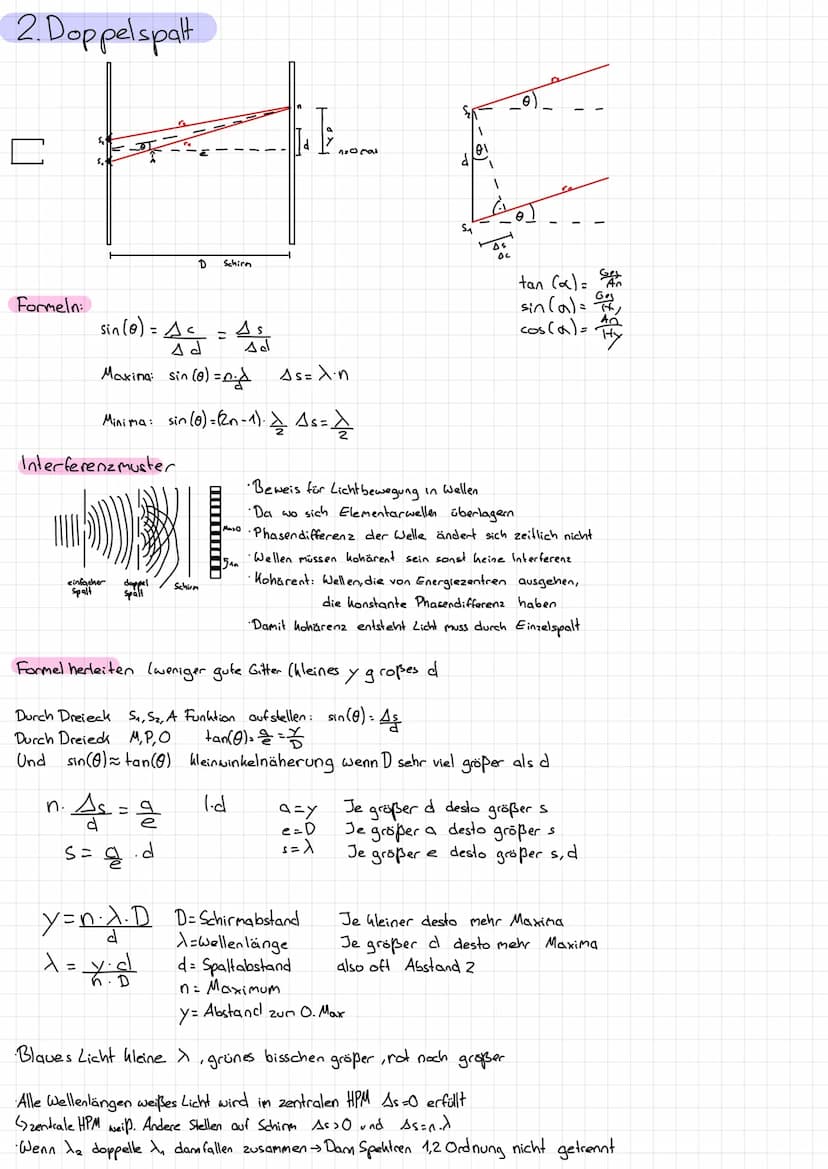 2. Doppelspalt
S₂
S₁
r₂
r₁
θ
λ
e
n
d
a
y
n=0 max
D Schirm
S₂
r₂
θ
d
θ
S₁
θ
r₁
Δs
Δc
tan (α) = Geg/An
sin (α) = Geg/Hy
cos (α) = An/Hy
Formeln:
sin(θ) = Δc/Δd = Δs/Δd
Maxima: sin(θ) = n·λ/d Δs = λ·n
Minima: sin(θ) = (2n-1)·λ/2 Δs = λ/2
Interferenzmuster
einfacher Spalt
doppel Spalt
Schirm
Max0
·Beweis für Lichtbewegung in Wellen
·Da wo sich Elementarwellen überlagern
·Phasendifferenz der Welle ändert sich zeitlich nicht
·Wellen müssen kohärent sein sonst keine Interferenz
·Kohärent: Wellen, die von Energiezentren ausgehen,
die konstante Phasendifferenz haben
·Damit kohärenz entsteht Licht muss durch Einzelspalt
Formel herleiten (weniger gute Gitter (kleines y großes d
Durch Dreieck S₁, S₂, A Funktion aufstellen: sin(θ) = Δs/d
Durch Dreieck M,P,O tan(θ) = a/e = y/D
Und sin(θ) ≈ tan(θ) kleinwinkelnäherung wenn D sehr viel größer als d
n· Δs/d = a/e |·d a=y Je größer d desto größer s
e=D Je größer a desto größer s
s = a/e · d s=λ Je größer e desto größer s, d
y = n·λ·D/d D = Schirmabstand Je kleiner desto mehr Maxima
λ = Wellenlänge Je größer d desto mehr Maxima
λ = y·d/n·D d = Spaltabstand also oft Abstand 2
n = Maximum
y = Abstand zum 0. Max
·Blaues Licht kleine λ, grünes bisschen größer, rot noch größer
·Alle Wellenlängen weißes Licht wird in zentralen HPM Δs=0 erfüllt
↳ zentrale HPM weiß. Andere Stellen auf Schirm Δs>0 und Δs=n·λ
·Wenn λ₂ doppelte λ₁ dann fallen zusammen → Dann Spektren 1,2 Ordnung nicht getrennt